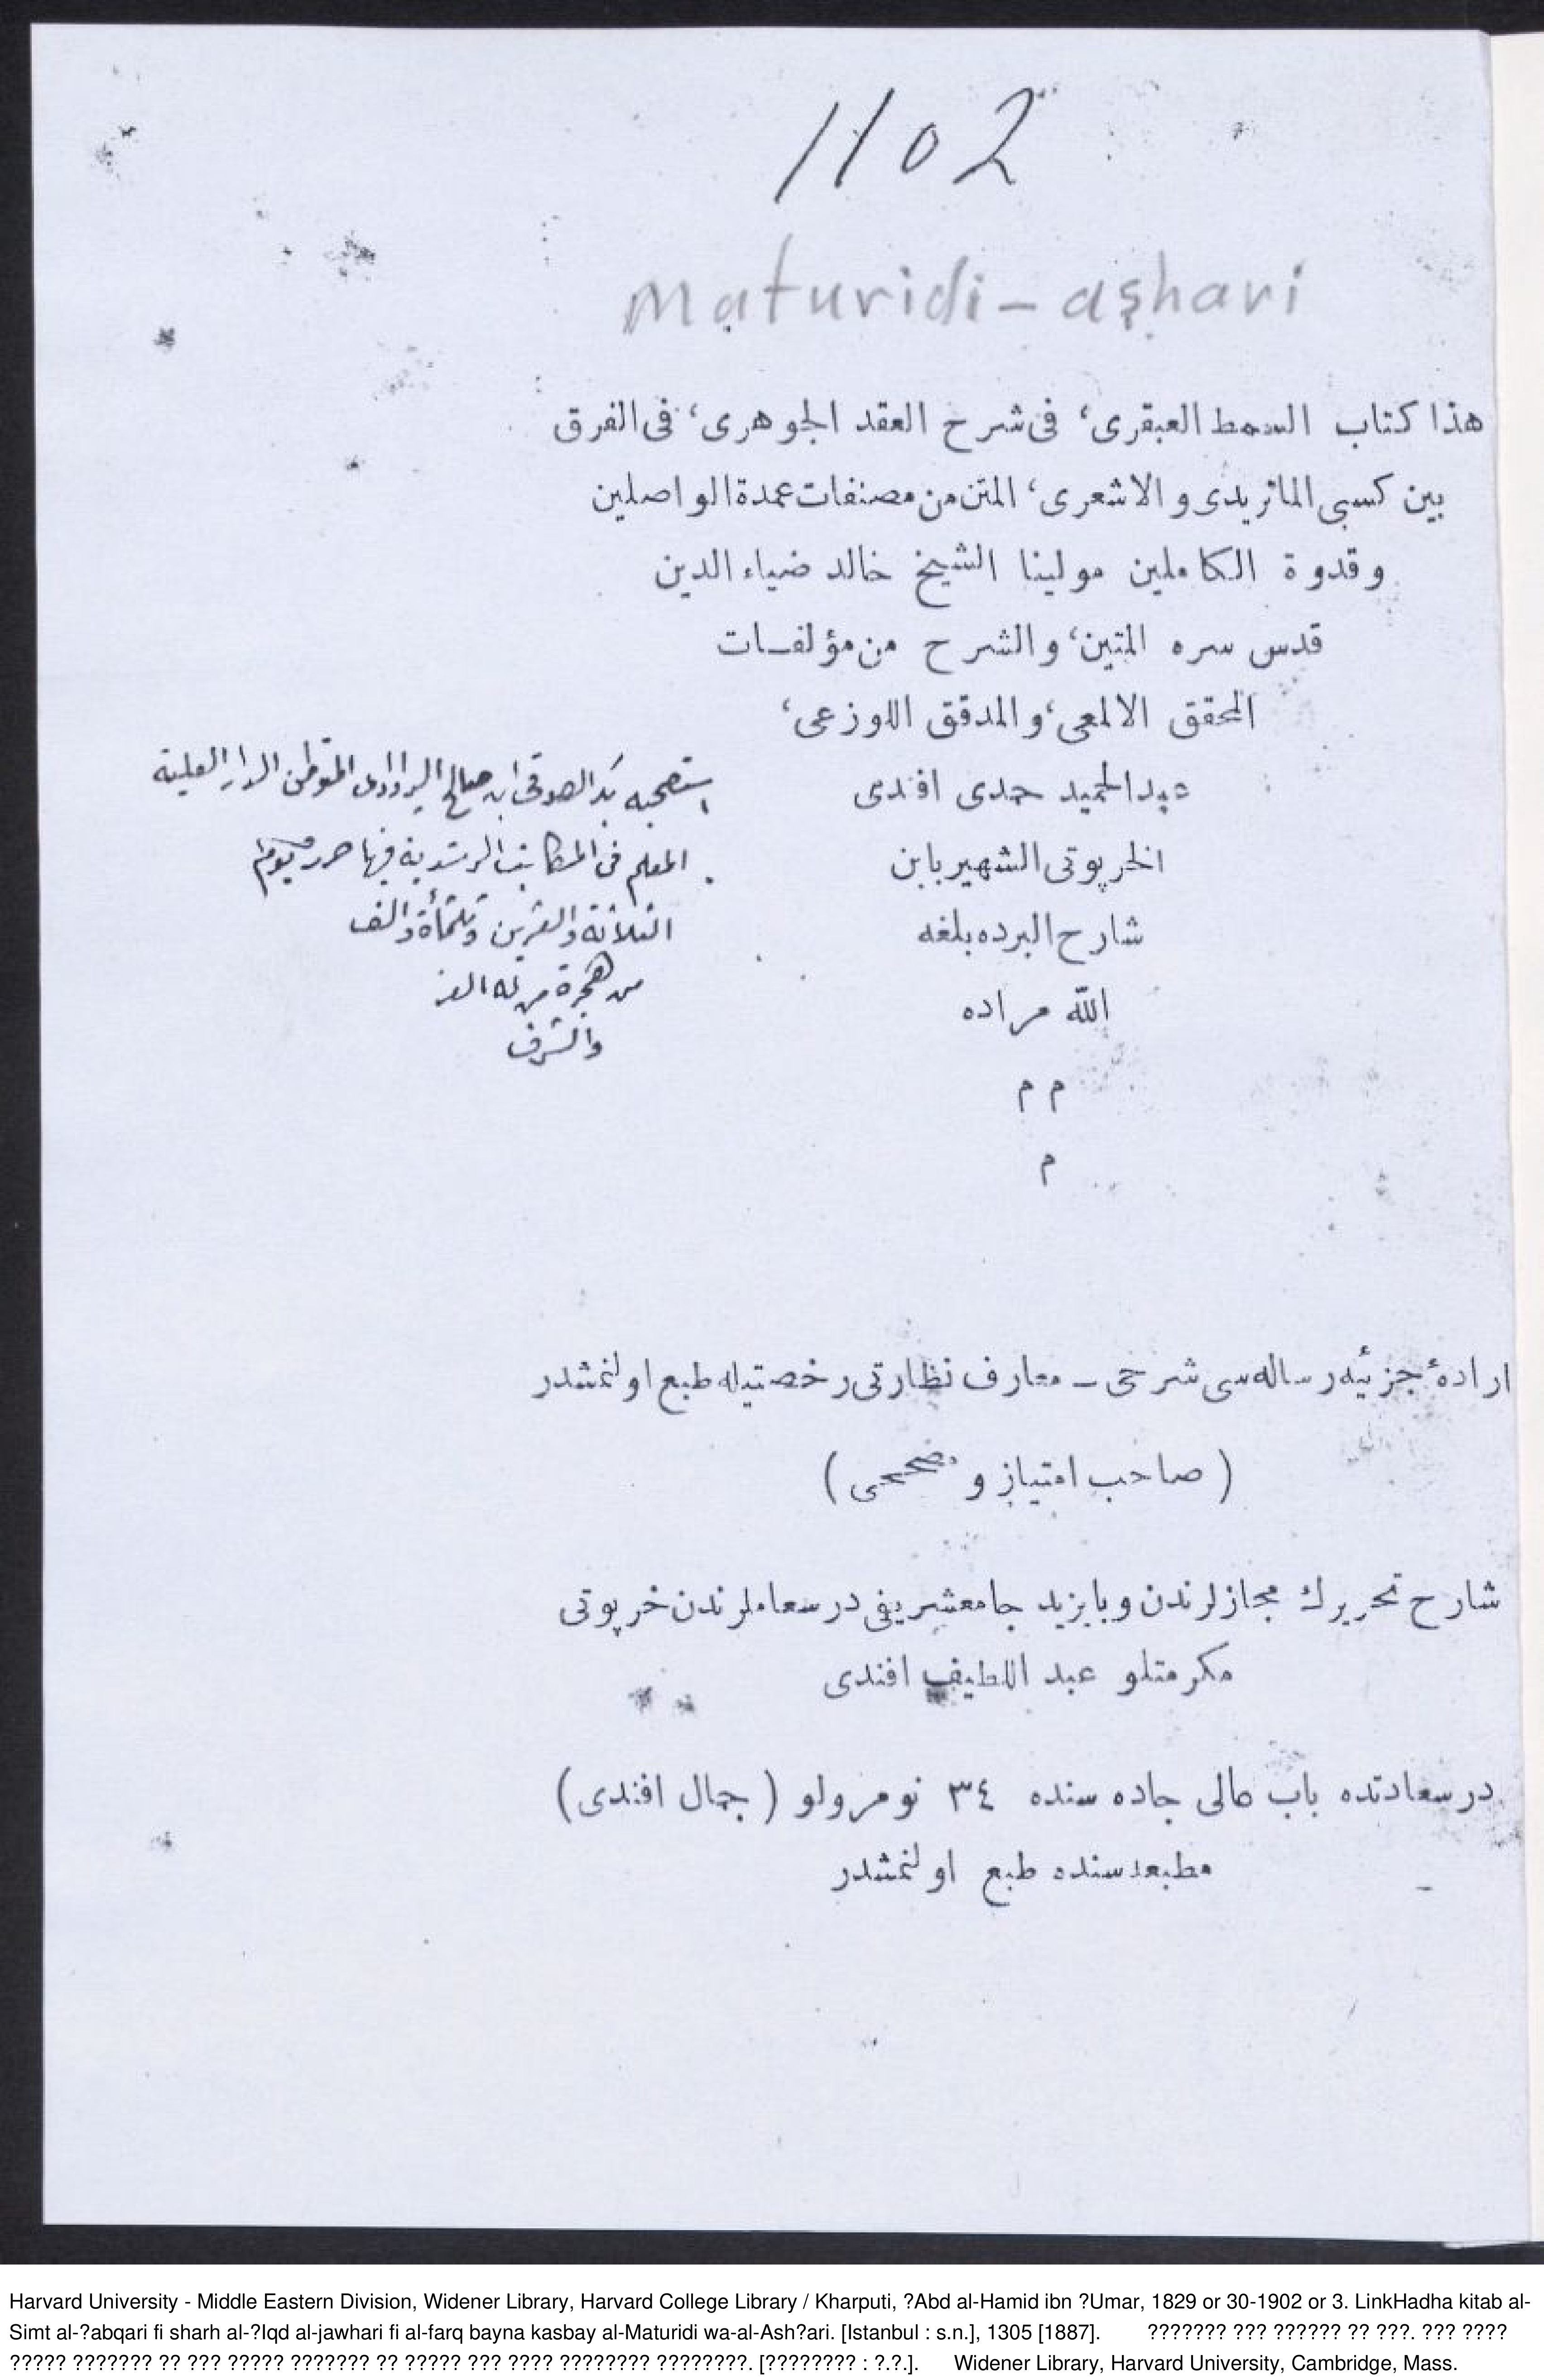 1102
Maturidi - aşhari
هذا كتاب السمط العبقرى، فى شرح العقد الجوهرى، فى الفرق
بين كسبى الماتريدى والاشعرى، المتن من مصنفات عمدة الواصلين
وقدوة الكاملين مولينا الشيخ خالد ضياء الدين
قدس سره المتين، والشرح من مؤلفات
المحقق الالمعى، والمدقق اللوزعى،
عبدالحميد حمدى افندى
الخرپوتى الشهير بابن
شارح البرده بلغه
الله مراده
م م
م
استصحبه المتوطن الدار العلية
المعلم فى المكاتب الرشدية فيها
الثلاثة والعشرين وثلثمأة والف
من هجرة من له العز
والشرف
ارادۀ جزئيه رساله سى شرحى ـ معارف نظارتى رخصتيله طبع اولنمشدر
(صاحب امتياز و مصححى)
شارح تحريرك مجازلرندن وبايزيد جامعشريفى درسعاملرندن خرپوتى
مكرمتلو عبد اللطيف افندى
درسعادتده باب عالى جاده سنده ٣٤ نومرولو (جمال افندى)
مطبعه سنده طبع اولنمشدر
Harvard University - Middle Eastern Division, Widener Library, Harvard College Library / Kharputi, ?Abd al-Hamid ibn ?Umar, 1829 or 30-1902 or 3. LinkHadha kitab al-
Simt al-?abqari fi sharh al-?Iqd al-jawhari fi al-farq bayna kasbay al-Maturidi wa-al-Ash?ari. [Istanbul : s.n.], 1305 [1887]. ??????? ??? ?????? ?? ???. ??? ????
????? ??????? ?? ??? ????? ??????? ?? ????? ??? ???? ???????? ????????. [???????? : ?.?.]. Widener Library, Harvard University, Cambridge, Mass.